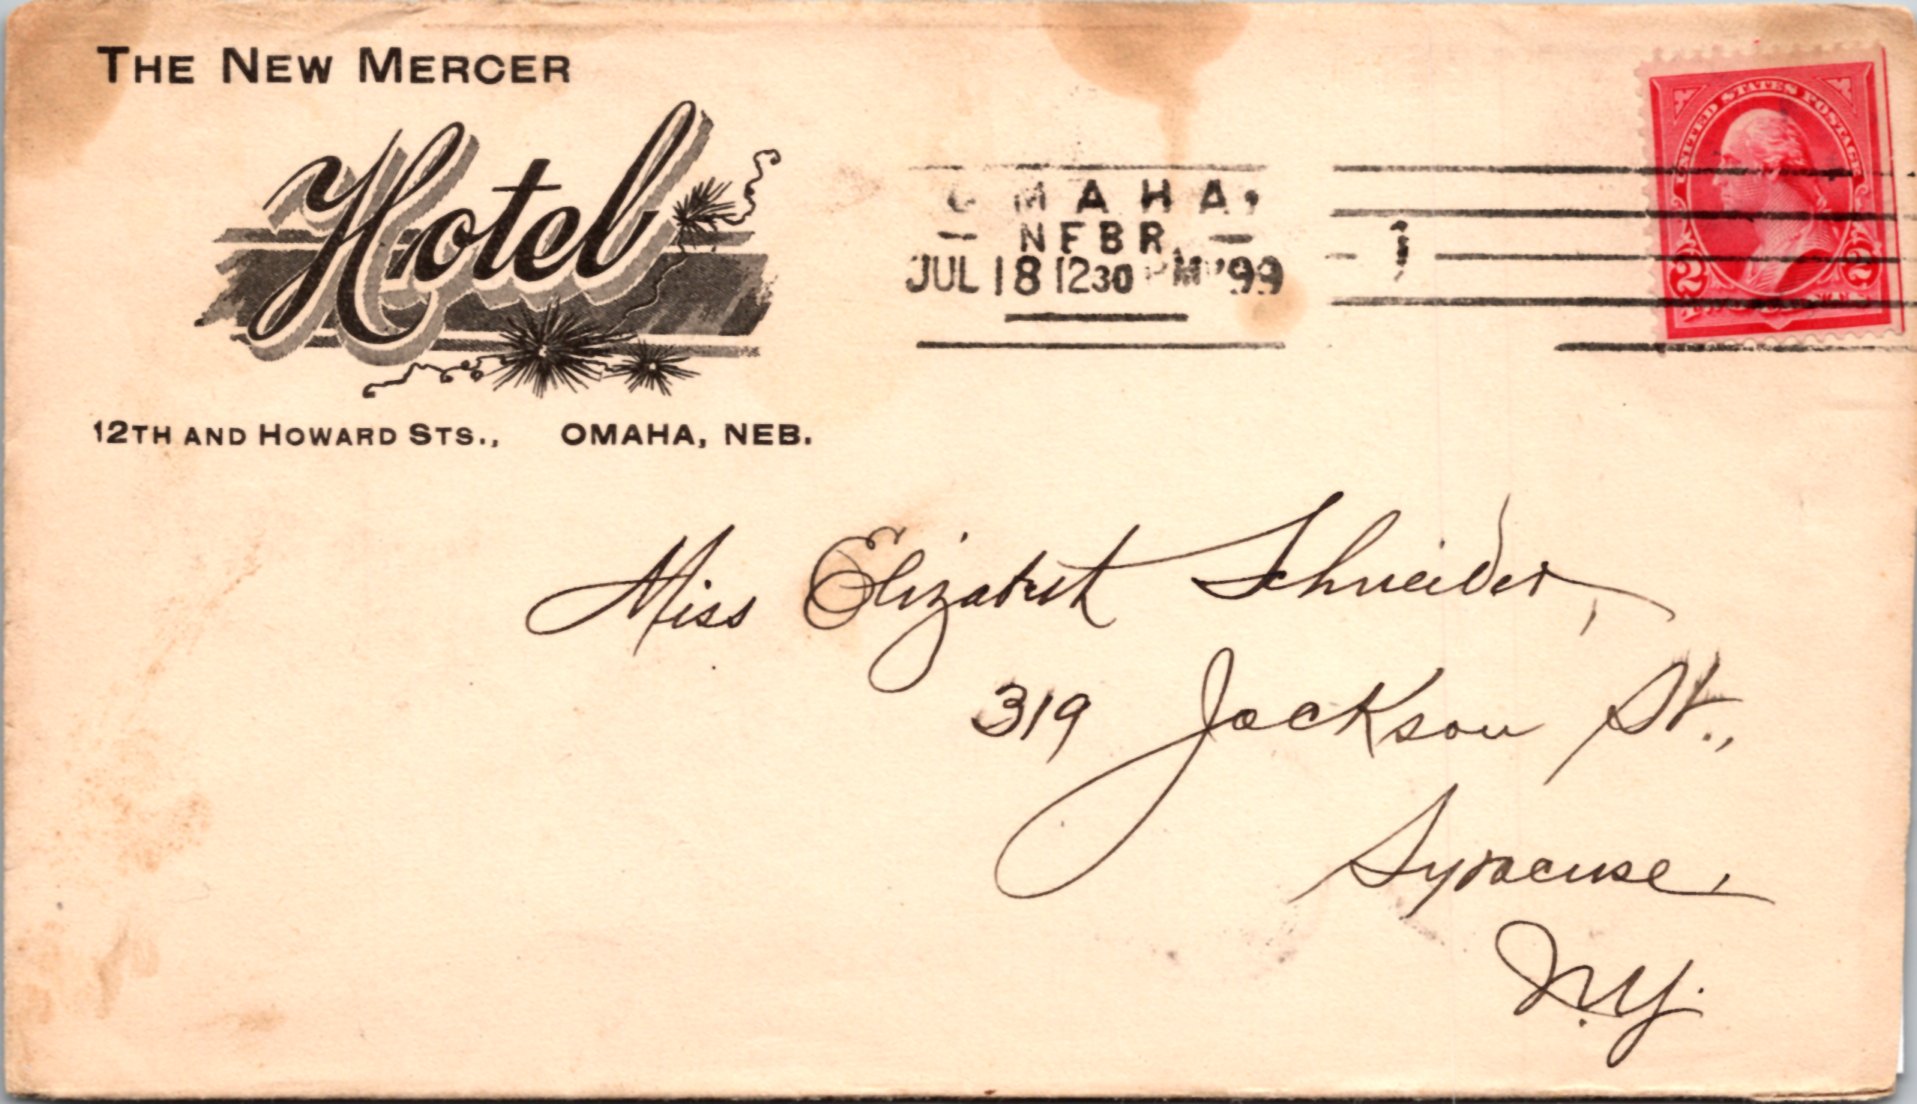 THE NEW MERCER
Hotel
12TH AND HOWARD STS., OMAHA, NEB.
OMAHA,
— NEBR. —
JUL 18 1230 PM '99
1
UNITED STATES POSTAGE
2 2
TWO CENTS
Miss Elizabeth Schneider,
319 Jackson St.,
Syracuse,
N.Y.